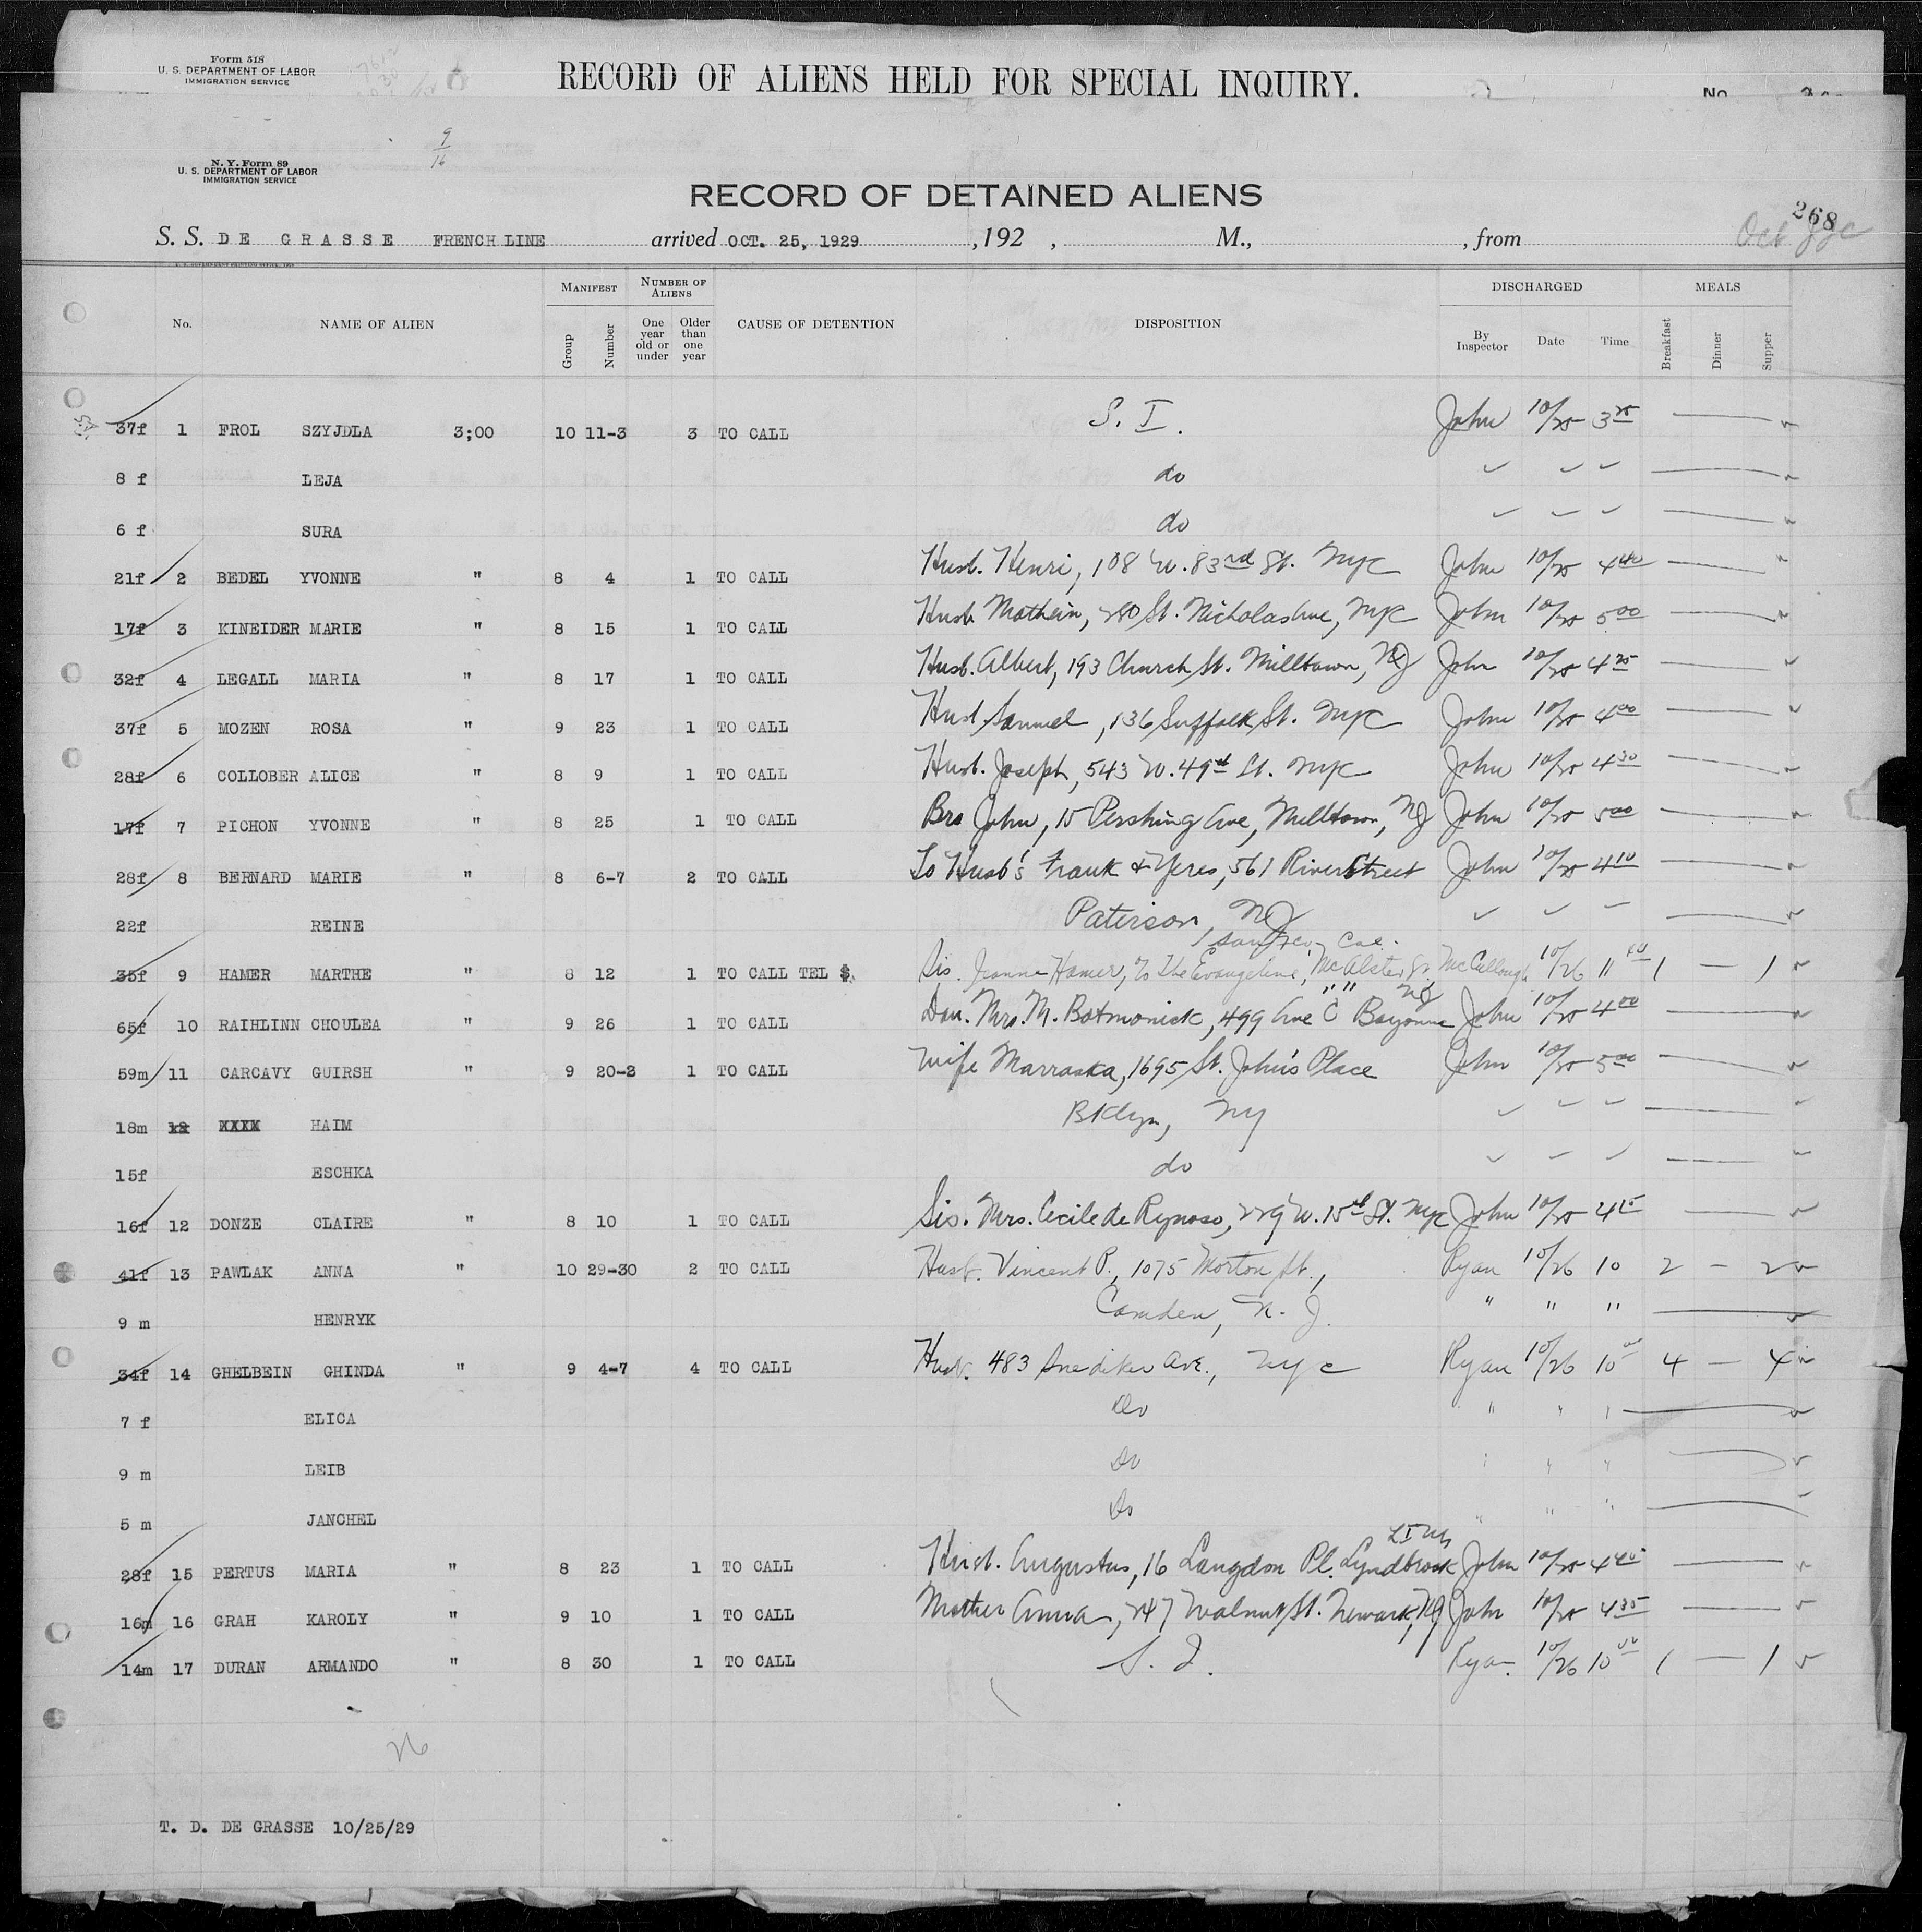 Form 518
U. S. DEPARTMENT OF LABOR
IMMIGRATION SERVICE
RECORD OF ALIENS HELD FOR SPECIAL INQUIRY.
No.
9/16
N. Y. Form 89
U. S. DEPARTMENT OF LABOR
IMMIGRATION SERVICE
RECORD OF DETAINED ALIENS
268
S. S. DE GRASSE FRENCH LINE arrived OCT. 25, 1929 , 192 , M., , from Oct
No. NAME OF ALIEN MANIFEST Group Number NUMBER OF ALIENS One year old or under Older than one year CAUSE OF DETENTION DISPOSITION DISCHARGED By Inspector Date Time MEALS Breakfast Dinner Supper
37f 1 FROL SZYJDLA 3;00 10 11-3 3 TO CALL S. I. John 10/25 3 25
8 f LEJA do
6 f SURA do
21f 2 BEDEL YVONNE " 8 4 1 TO CALL Husb. Henri, 108 W. 83rd St. NYC John 10/25 4 40
17f 3 KINEIDER MARIE " 8 15 1 TO CALL Husb Mathein, 280 St. Nicholas Ave, NYC John 10/25 5 00
32f 4 LEGALL MARIA " 8 17 1 TO CALL Husb. Albert, 193 Church St. Milltown, NJ John 10/25 4 25
37f 5 MOZEN ROSA " 9 23 1 TO CALL Husb Samuel, 136 Suffolk St. NYC John 10/25 4 00
28f 6 COLLOBER ALICE " 8 9 1 TO CALL Husb. Joseph, 543 W. 49th St. NYC John 10/25 4 30
17f 7 PICHON YVONNE " 8 25 1 TO CALL Bro John, 15 Pershing Ave, Milltown, NJ John 10/25 5 00
28f 8 BERNARD MARIE " 8 6-7 2 TO CALL To Husb's Frank & Yeres, 561 River Street John 10/25 4 10
22f REINE Paterson, NJ
San Fco, Cal.
35f 9 HAMER MARTHE " 8 12 1 TO CALL TEL $ Sis. Jeanne Hamer, % The Evangeline, McAlster St McCullough 10/26 11 1 — 1
65f 10 RAIHLINN CHOULEA " 9 26 1 TO CALL Dau. Mrs. M. Botmonick, 499 Ave C Bayonne NJ John 10/25 4 00
59m 11 CARCAVY GUIRSH " 9 20-2 1 TO CALL Wife Marraska, 1695 St. John's Place John 10/25 5 00
18m 12 XXXX HAIM Bklyn, NY
15f ESCHKA do
16f 12 DONZE CLAIRE " 8 10 1 TO CALL Sis. Mrs. Cecile de Reynoso, 229 W. 15th St. NYC John 10/25 4 15
41f 13 PAWLAK ANNA " 10 29-30 2 TO CALL Husb. Vincent P., 1075 Morton St., Ryan 10/26 10 2 — 2
9 m HENRYK Camden, N. J. " " "
34f 14 GHELBEIN GHINDA " 9 4-7 4 TO CALL Husb. 483 Snediker Ave., NYC Ryan 10/26 10 00 4 — 4
7 f ELICA Do " " "
9 m LEIB Do " " "
5 m JANCHEL Do " " "
LI NY
28f 15 PERTUS MARIA " 8 23 1 TO CALL Husb. Augustus, 16 Langdon Pl. Lyndbrook John 10/25 4 40
16m 16 GRAH KAROLY " 9 10 1 TO CALL Mother Anna, 247 Walnut St. Newark, NJ John 10/25 4 35
14m 17 DURAN ARMANDO " 8 30 1 TO CALL S. I. Ryan 10/26 10 00 1 — 1
26
T. D. DE GRASSE 10/25/29